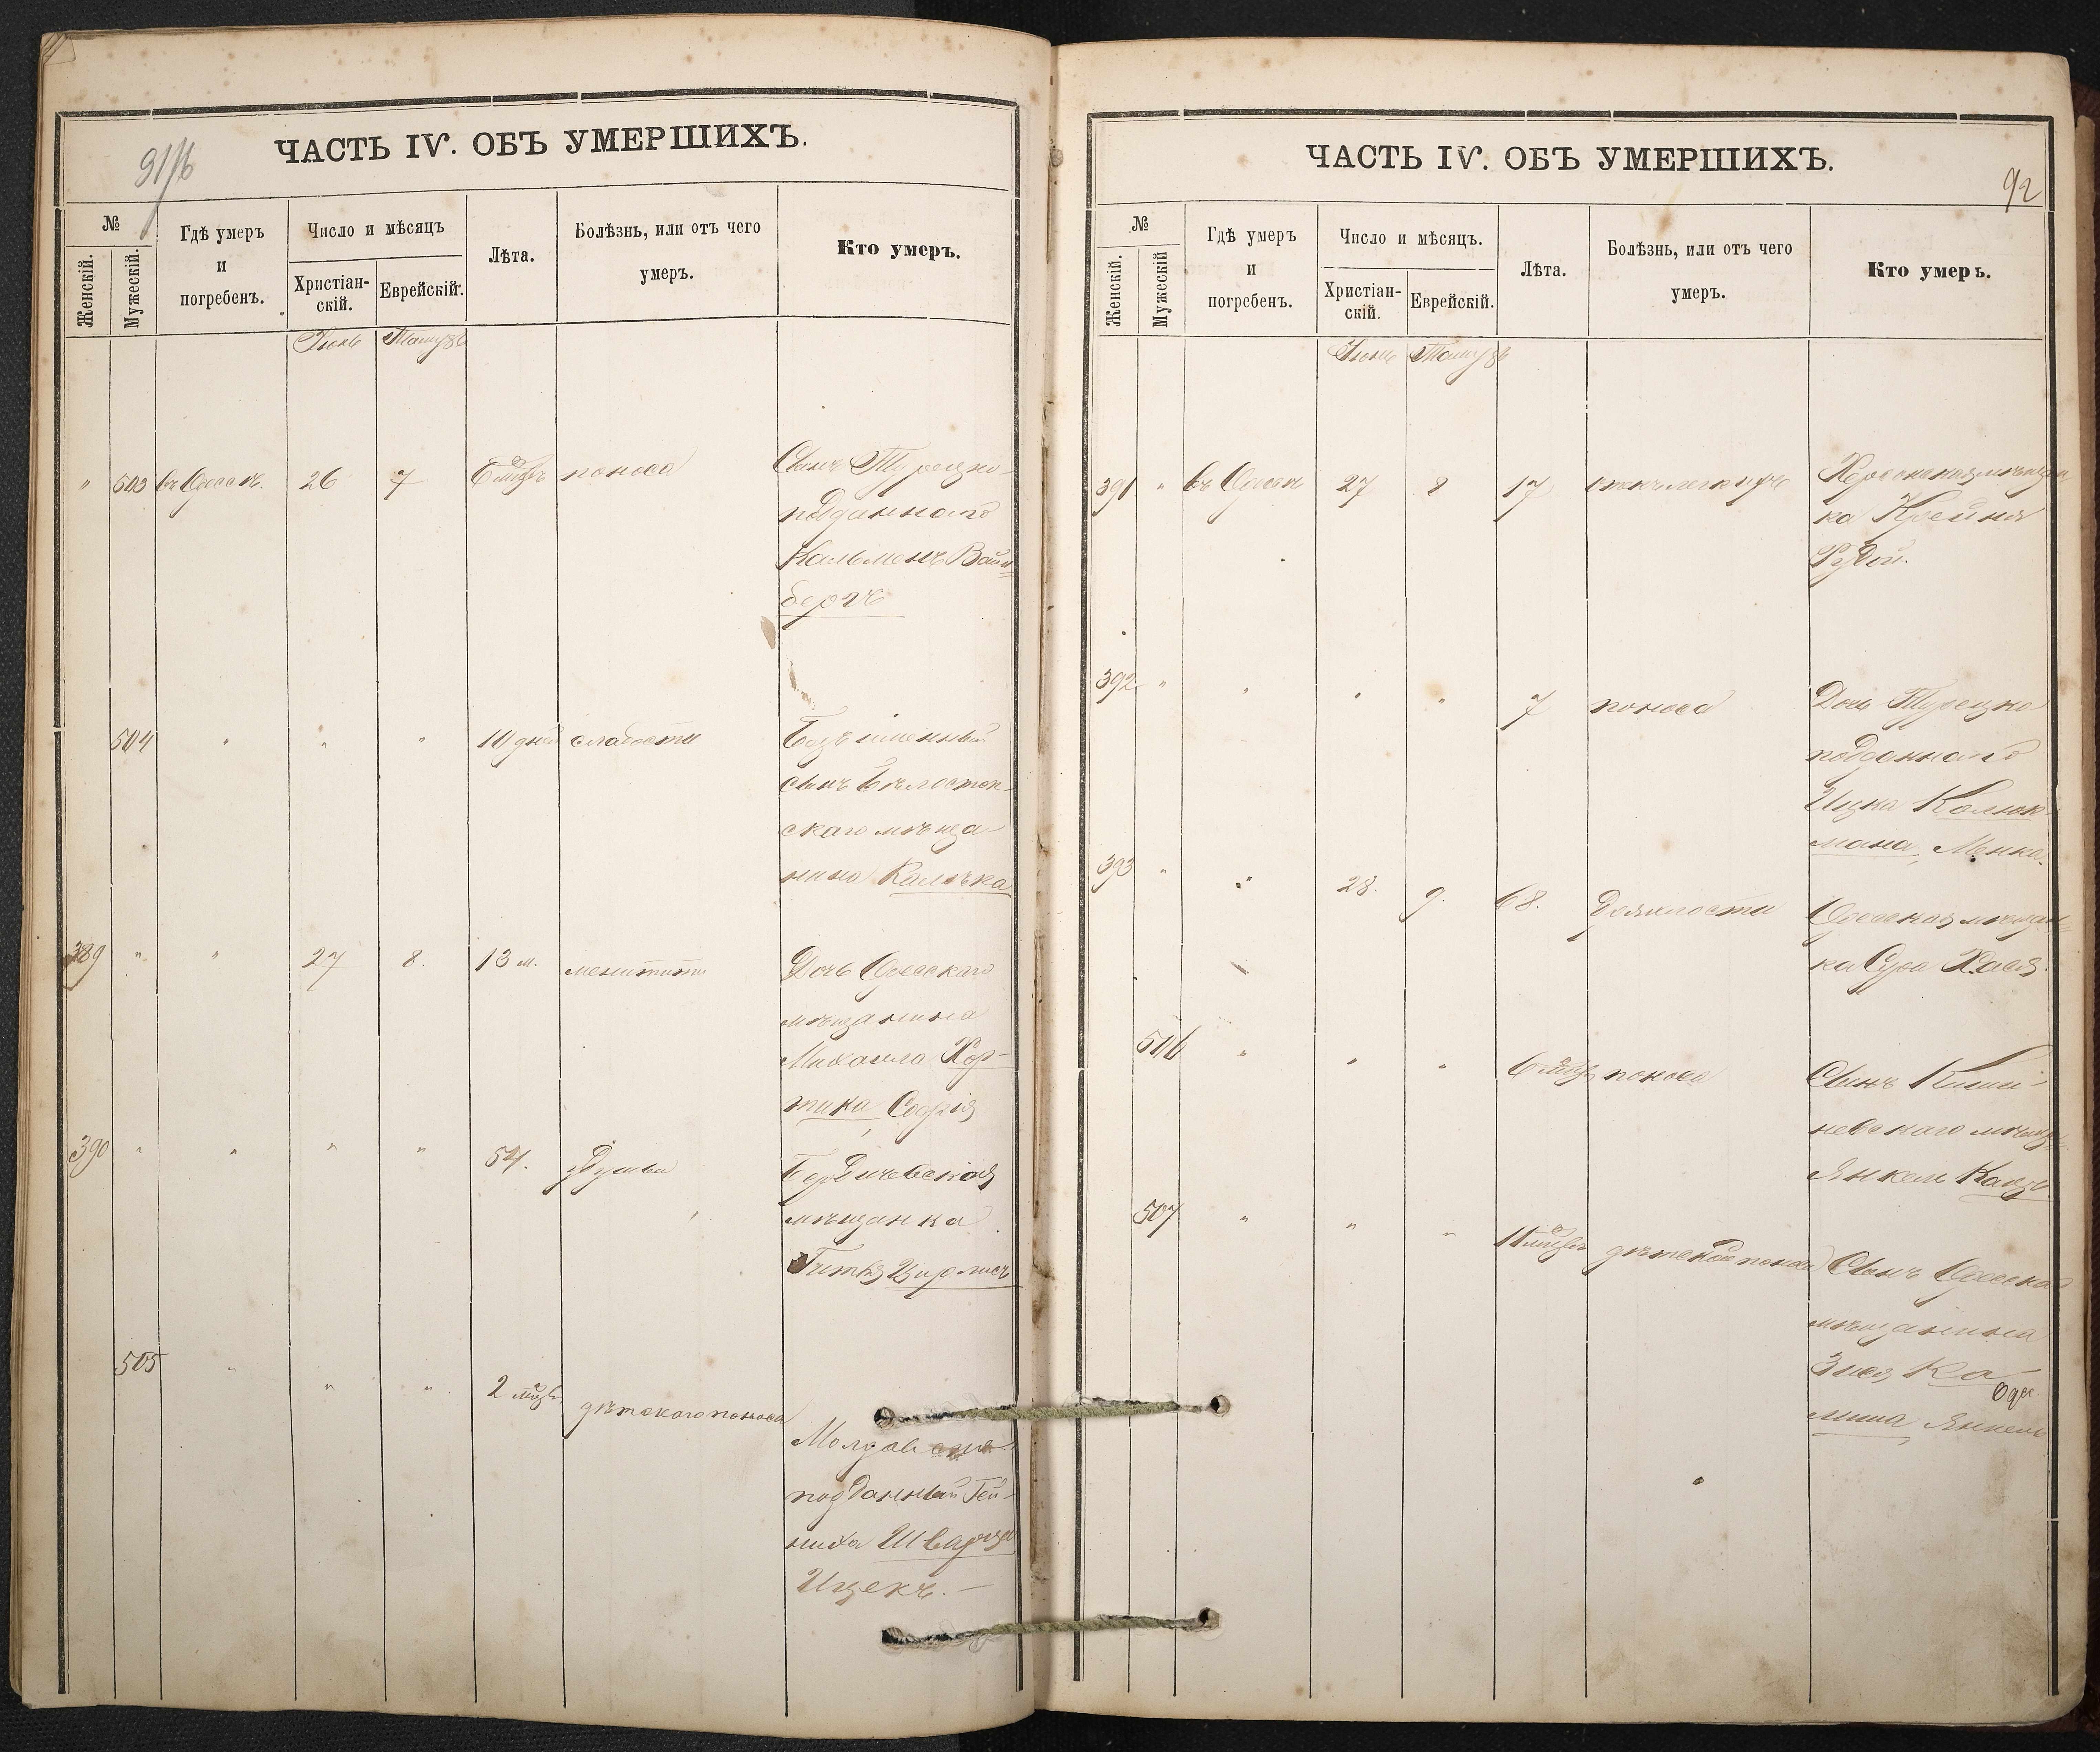 91/б
ЧАСТЬ IV. ОБЪ УМЕРШИХЪ.
№
Женскій.
Мужескій.
Гдѣ умеръ
и
погребенъ.
Число и мѣсяцъ
Христіан-
скій.
Еврейскій.
Лѣта.
Болѣзнь, или отъ чего
умеръ.
Кто умеръ.
Іюнь Тамузъ
" 503 въ Одессѣ. 26 7 6 мцвъ поноса Сынъ Турецко-
подданнаго
Кальменъ Вайн=
бергъ
504 " " " 10 дней слабости Безъименный
сынъ Бѣлосток-
скаго мѣща-
нина
389 " " 27 8. 13 м. менингита Дочь Одесскаго
мѣщанина
Михаила Хер-
тика, Софія
390 " " " " 54. Бердичевская
мѣщанка
505 " " " 2 мцвъ дѣтскаго поноса
Молдавск.
подданный Гей-
ниха Шварца
Ицекъ. —
92
ЧАСТЬ IV. ОБЪ УМЕРШИХЪ.
№
Женскій.
Мужескій
Гдѣ умеръ
и
погребенъ.
Число и мѣсяцъ.
Христіан-
скій.
Еврейскій.
Лѣта.
Болѣзнь, или отъ чего
умеръ.
Кто умеръ.
Іюнь Тамузъ
391 " въ Одессѣ 27 8 17 Херсонская мѣщан
ка Крейня
392 " " " " 7 поноса Дочь Турецко
подданнаго
Ицка
мана,
393 " " 28. 9. 68. Дряхлости Одесская мѣщан=
ка Сура Хася.
506 " " " 6 мцвъ поноса Сынъ Киши-
невскаго мѣщ.
Янкель
507 " " " 11 мцвъ дѣтской поноса Сынъ Одесска
мѣщанина
Зися Ка-
Одес.
мина, Янкель